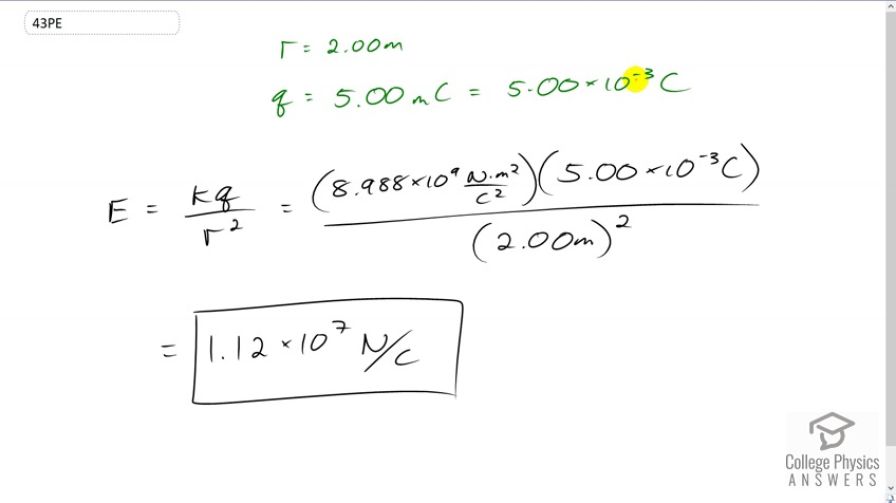 43PE
r = 2.00m
q = 5.00 mC = 5.00 × 10⁻³ C
E = kq/r² = (8.988 × 10⁹ N·m²/C²)(5.00 × 10⁻³ C)/(2.00m)²
= 1.12 × 10⁷ N/C
College Physics
ANSWERS